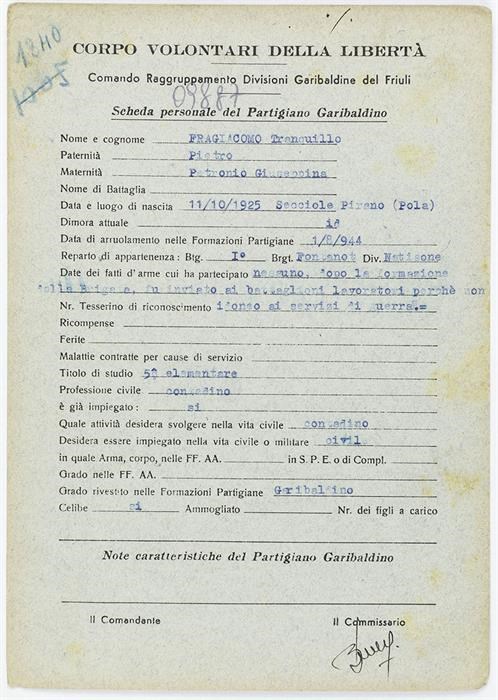 1240
1005
CORPO VOLONTARI DELLA LIBERTÀ
Comando Raggruppamento Divisioni Garibaldine del Friuli
09887
Scheda personale del Partigiano Garibaldino
Nome e cognome FRAGIACOMO Tranquillo
Paternità Pietro
Maternità Petronio Giuseppina
Nome di Battaglia
Data e luogo di nascita 11/10/1925 Secciole Pirano (Pola)
Dimora attuale id
Data di arruolamento nelle Formazioni Partigiane 1/8/944
Reparto di appartenenza: Btg. I° Brgt. Fontanot Div. Natisone
Date dei fatti d'arme cui ha partecipato nessuno, dopo la formazione
della Brigata, fu inviato ai battaglioni lavoratori perchè non
Nr. Tesserino di riconoscimento idoneo ai servizi di guerra.=
Ricompense
Ferite
Malattie contratte per cause di servizio
Titolo di studio 5ª elementare
Professione civile contadino
è già impiegato: si
Quale attività desidera svolgere nella vita civile contadino
Desidera essere impiegato nella vita civile o militare civile
in quale Arma, corpo, nelle FF. AA. in S. P. E. o di Compl.
Grado nelle FF. AA.
Grado rivestito nelle Formazioni Partigiane Garibaldino
Celibe si Ammogliato Nr. dei figli a carico
Note caratteristiche del Partigiano Garibaldino
Il Comandante Il Commissario